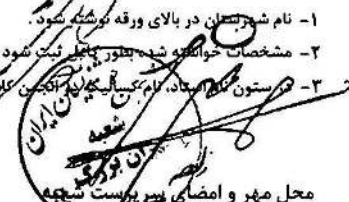 ۱- نام شهرستان در بالای ورقه نوشته شود.
۲- مشخصات خواسته شده بطور کامل ثبت شود
۳- در ستون نام استاد، نام کسانیکه در انجمن
شعبه
محل مهر و امضای سرپرست شعبه